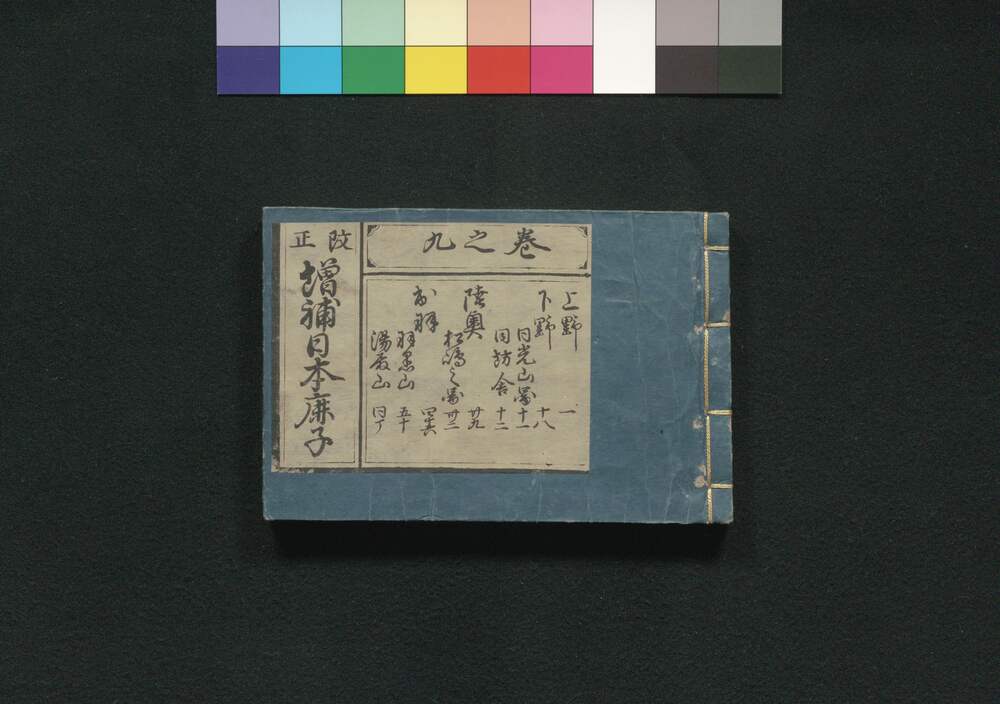 巻之九
上野 一
下野 十八
日光山図 十一
同坊舎 十二
陸奥 廿九
松嶋之図 卅二
出羽
羽黒山 五十
湯殿山 同丁
改正
増補日本鹿子